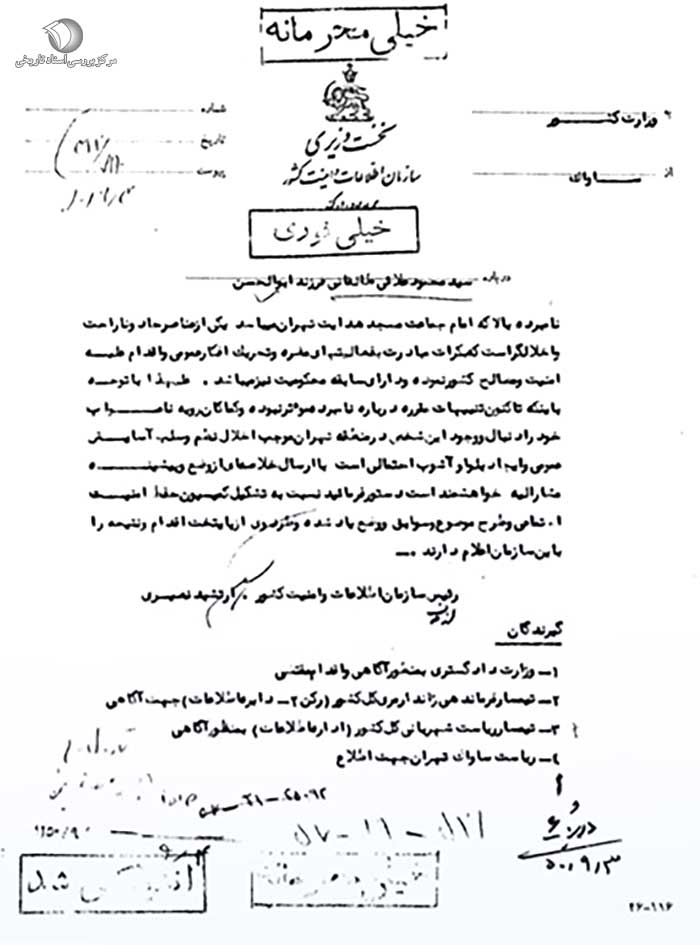 خیلی محرمانه
مرکز بررسی اسناد تاریخی
وزارت کشور
شماره
نخست وزیری
تاریخ
از ساواک
سازمان اطلاعات و امنیت کشور
پیوست
خیلی فوری
درباره سید محمود علائی طالقانی فرزند ابوالحسن
نامبرده بالا که امام جماعت مسجد هدایت تهران میباشد یکی از عناصر حاد و ناراحت
و اخلالگر است که بکرات مبادرت بفعالیتهای مضره و تحریک افکار عمومی و اقدام علیه
امنیت و مصالح کشور نموده و دارای سابقه محکومیت نیز میباشد . علیهذا با توجه
باینکه تاکنون تنبیهات مقرره درباره نامبرده موثر نبوده و کماکان رویه ناصواب
خود را دنبال و وجود این شخص در منطقه تهران موجب اخلال نظم و سلب آسایش
عمومی و ایجاد بلوا و آشوب احتمالی است با ارسال خلاصه‌ای از وضع و پیشینه
مشارالیه خواهشمند است دستور فرمائید نسبت به تشکیل کمیسیون حفظ امنیت
اجتماعی و طرح موضوع و سوابق و وضع یاد شده و طرد وی از پایتخت اقدام و نتیجه را
باین سازمان اعلام دارند .
رئیس سازمان اطلاعات و امنیت کشور . ارتشبد نصیری
گیرندگان
۱- وزارت دادگستری بمنظور آگاهی و اقدام مقتضی
۲- تیمسار فرماندهی ژاندارمری کل کشور (رکن ۲- دایره اطلاعات) جهت آگاهی
۳- تیمسار ریاست شهربانی کل کشور (اداره اطلاعات) بمنظور آگاهی
۴- ریاست ساواک تهران جهت اطلاع
۵۰/۹/۳
خیلی محرمانه
۲۶-۱۱۶